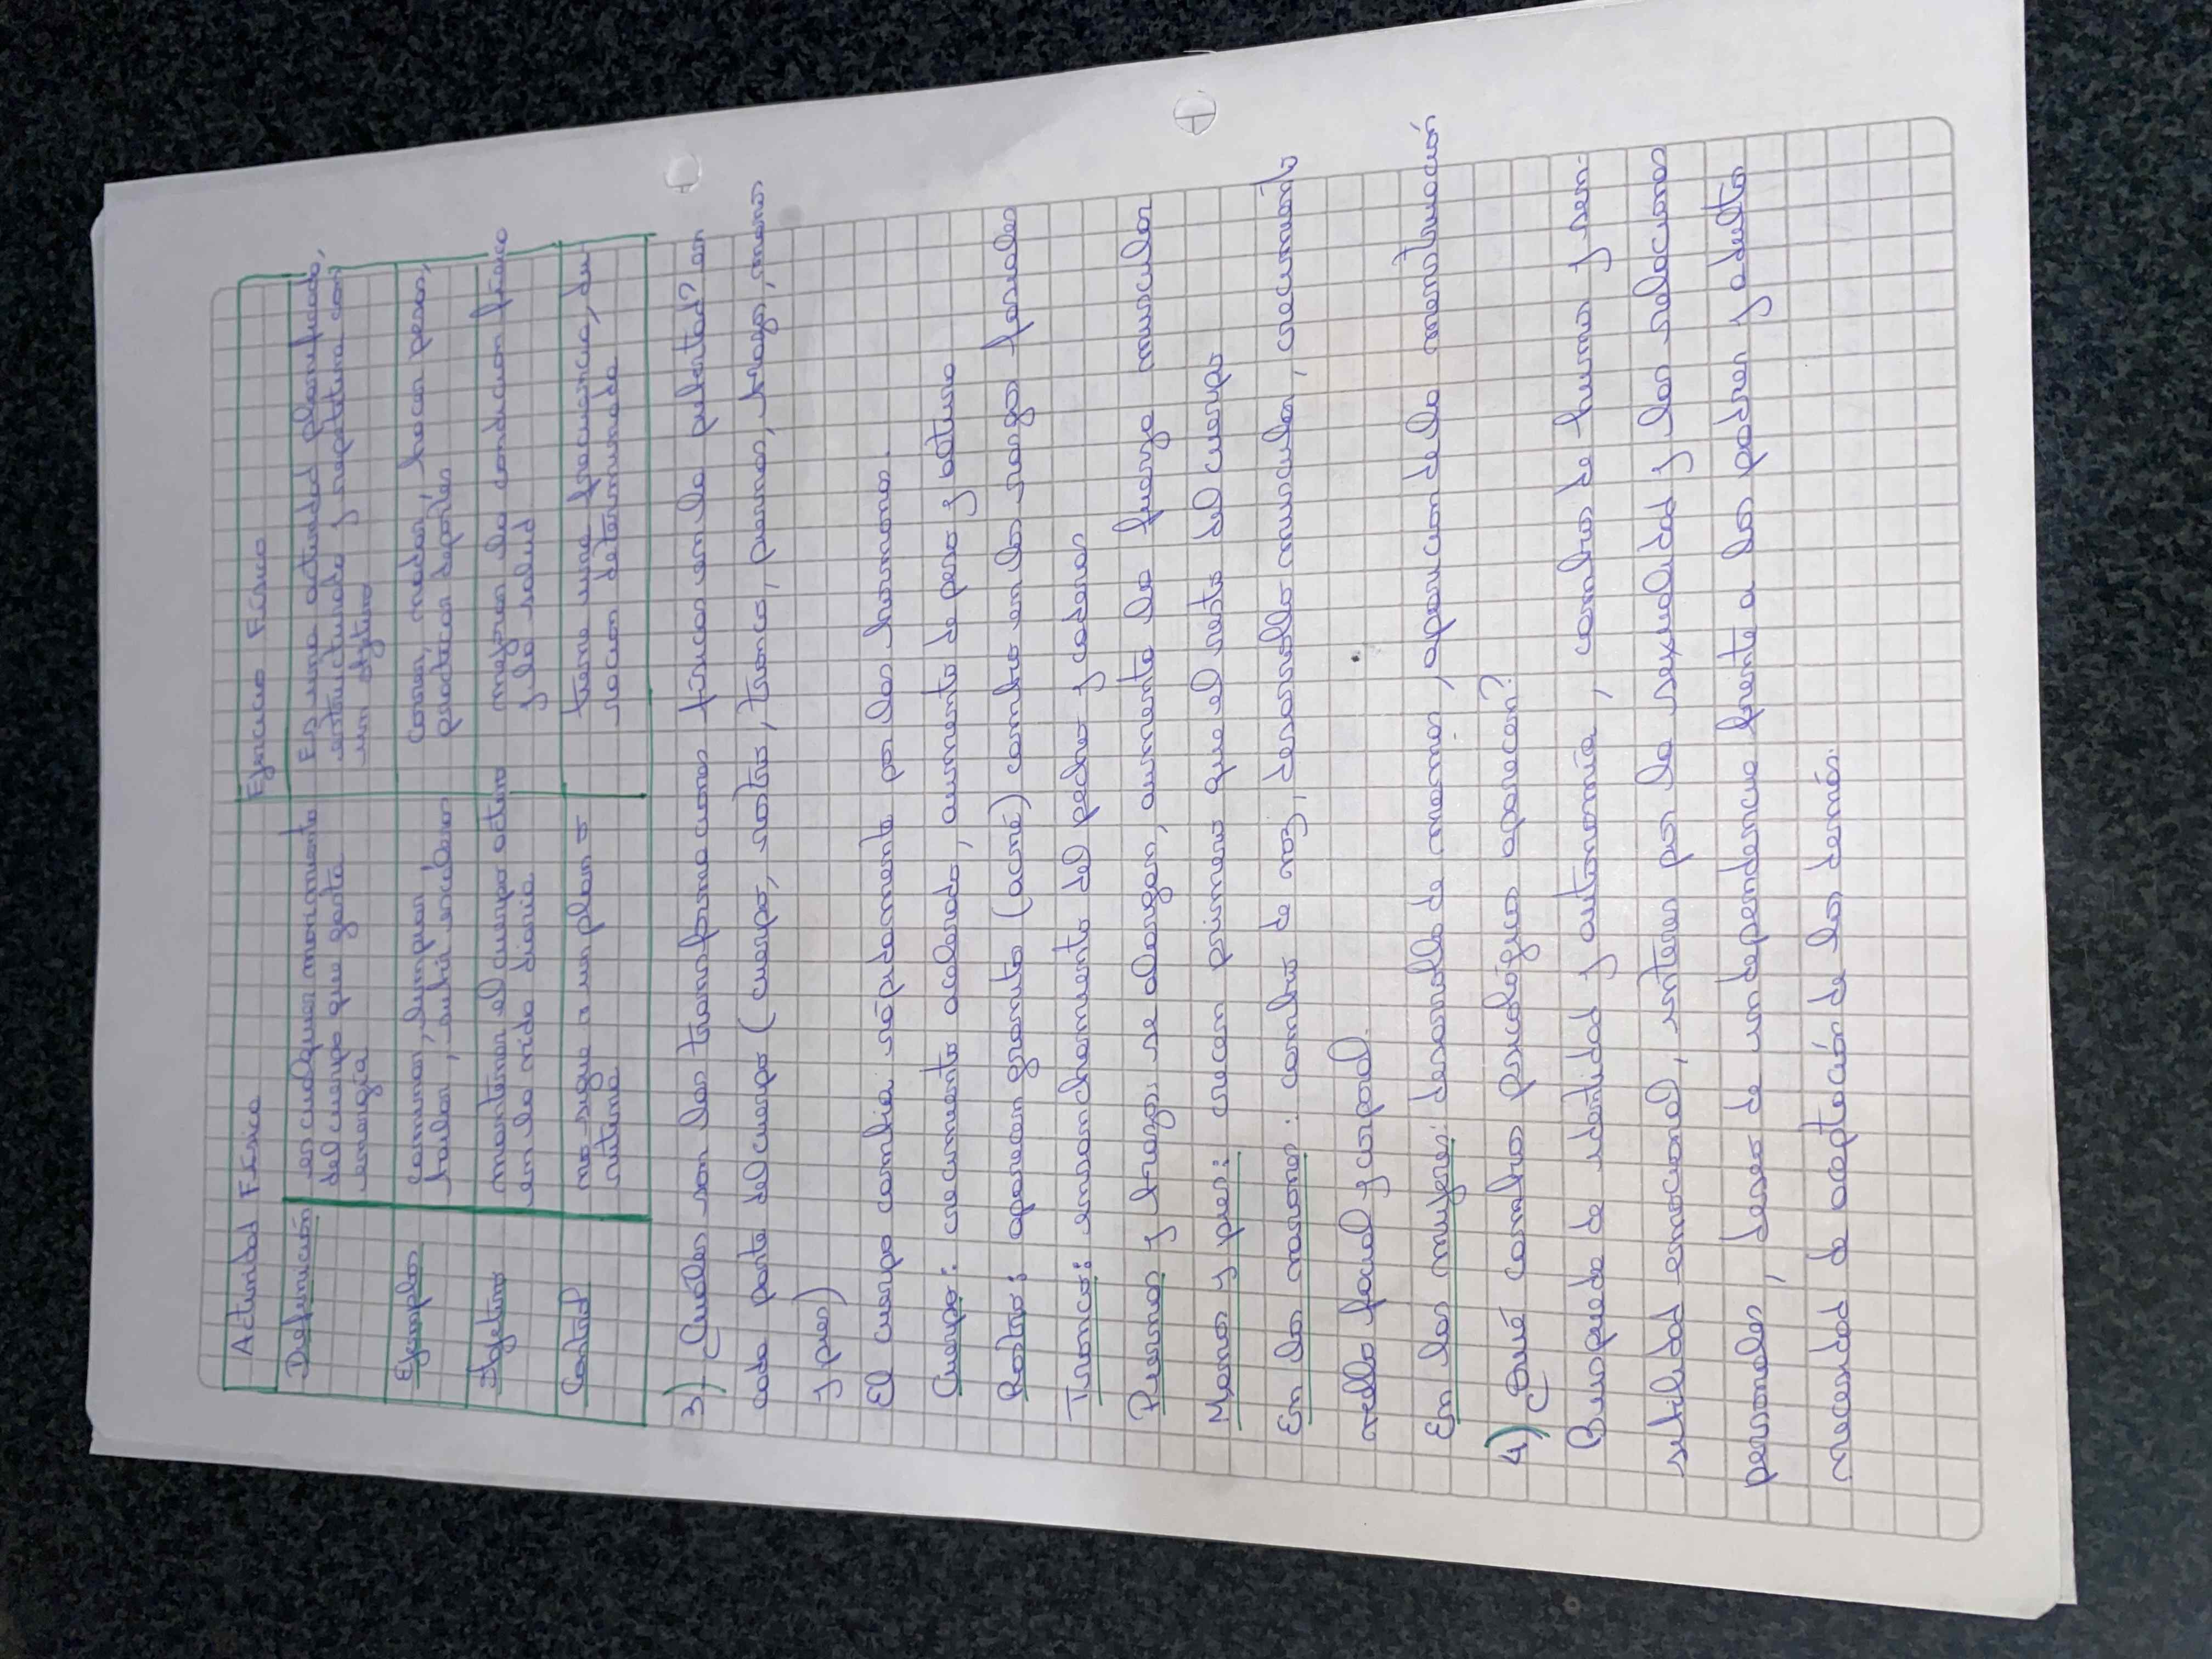 Actividad Física Ejercicio Físico
Definición es cualquier movimiento Es una actividad planificada,
del cuerpo que gasta estructurada y repetitiva con
energía un objetivo
Ejemplos caminar, limpiar Correr, nadar, hacer pesas,
bailar, subir escaleras practicar deportes
Objetivo mantener el cuerpo activo mejorar la condicion física
en la vida diaria y la salud
Control no sigue a un plan o tiene una frecuencia, du
rutina racion determinada
3) ¿Cuáles son las transformaciones físicas en la pubertad? en
cada parte del cuerpo (cuerpo, rostro, tronco, piernas, brazo, manos
y pies)
El cuerpo cambia rápidamente por las hormonas.
Cuerpo: crecimiento acelerado, aumento de peso y estura
Rostro: aparecen granito (acné) cambio en los rasgo faciales
Tronco: ensanchamiento del pecho y caderas
Piernas y brazos: se alargan, aumenta la fuerza muscular
Manos y pies: crecen primero que el resto del cuerpo
En los varones: cambio de voz, desarrollo muscular, crecimiento
vello facial y corporal.
En las mujeres: desarrollo de mamas, aparicion de la menstruación
4) ¿Qué cambios psicológicos aparecen?
Busqueda de identidad y autonomía, cambios de humor y sen-
sibilidad emocional, interes por la sexualidad y las relaciones
personales, deseo de independencia frente a los padres y adulto
necesidad de aceptación de los demás.